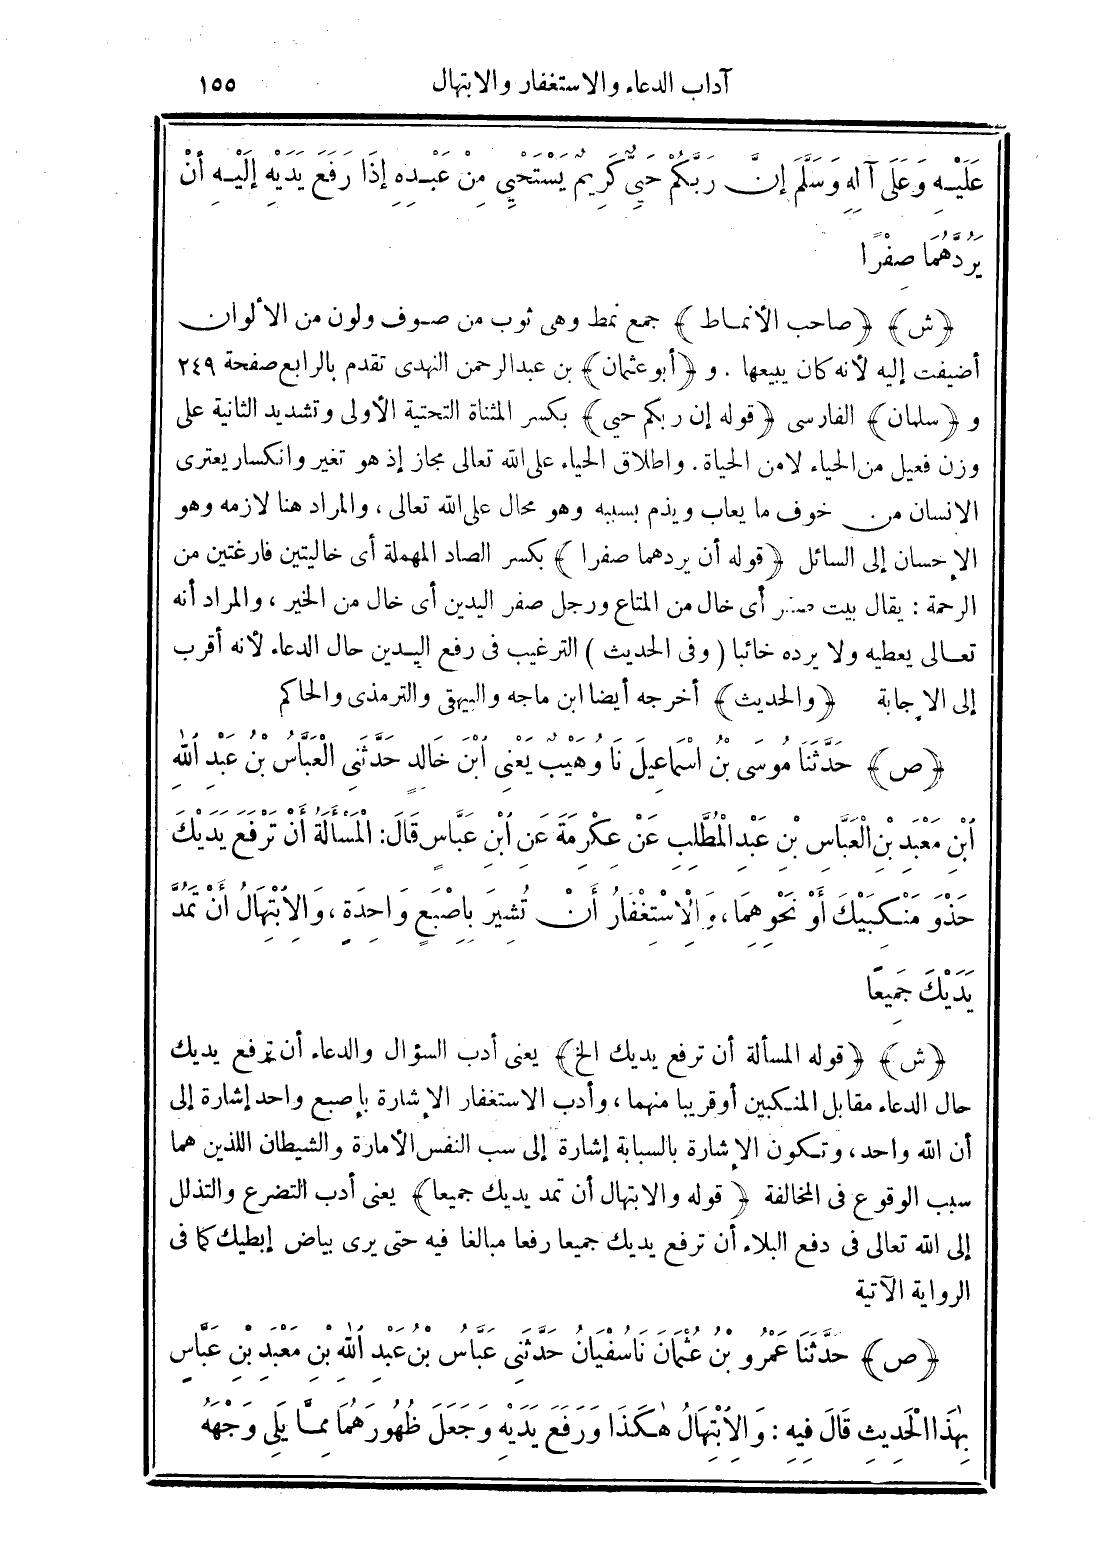 آداب الدعاء والاستغفار والابتهال ١٥٥
عَلَيْهِ وَعَلَى آلِهِ وَسَلَّمَ إِنَّ رَبَّكُمْ حَيِيٌّ كَرِيمٌ يَسْتَحْيِي مِنْ عَبْدِهِ إِذَا رَفَعَ يَدَيْهِ إِلَيْهِ أَنْ
يَرُدَّهُمَا صِفْرًا
﴿ش﴾ ﴿صاحب الأنماط﴾ جمع نمط وهى ثوب من صوف ولون من الألوان
أضيفت إليه لأنه كان يبيعها . و ﴿أبو عثمان﴾ بن عبدالرحمن النهدى تقدم بالرابع صفحة ٢٤٩
و ﴿سلمان﴾ الفارسى ﴿قوله إن ربكم حيي﴾ بكسر المثناة التحتية الأولى وتشديد الثانية على
وزن فعيل من الحياء لا من الحياة . واطلاق الحياء على الله تعالى مجاز إذ هو تغير وانكسار يعترى
الانسان من خوف ما يعاب ويذم بسببه وهو محال على الله تعالى ، والمراد هنا لازمه وهو
الإحسان إلى السائل ﴿قوله أن يردهما صفرا﴾ بكسر الصاد المهملة أى خاليتين فارغتين من
الرحمة : يقال بيت صفر أى خال من المتاع ورجل صفر اليدين أى خال من الخير ، والمراد أنه
تعالى يعطيه ولا يرده خائبا (وفى الحديث) الترغيب فى رفع اليدين حال الدعاء لأنه أقرب
إلى الإجابة ﴿والحديث﴾ أخرجه أيضا ابن ماجه والبيهقى والترمذى والحاكم
﴿ص﴾ حَدَّثَنَا مُوسَى بْنُ اسْمَاعِيلَ نَا وُهَيْبٌ يَعْنِى ابْنَ خَالِدٍ حَدَّثَنِى الْعَبَّاسُ بْنُ عَبْدِ اللهِ
ابْنِ مَعْبَدِ بْنِ الْعَبَّاسِ بْنِ عَبْدِ الْمُطَّلِبِ عَنْ عِكْرِمَةَ عَنِ ابْنِ عَبَّاسٍ قَالَ : الْمَسْأَلَةُ أَنْ تَرْفَعَ يَدَيْكَ
حَذْوَ مَنْكِبَيْكَ أَوْ نَحْوِهِمَا ، وَالْاسْتِغْفَارُ أَنْ تُشِيرَ بِاصْبَعٍ وَاحِدَةٍ ، وَالِابْتِهَالُ أَنْ تَمُدَّ
يَدَيْكَ جَمِيعًا
﴿ش﴾ ﴿قوله المسألة أن ترفع يديك الخ﴾ يعنى أدب السؤال والدعاء أن ترفع يديك
حال الدعاء مقابل المنكبين أو قريبا منهما ، وأدب الاستغفار الإشارة بإصبع واحد إشارة إلى
أن الله واحد ، وتكون الإشارة بالسبابة إشارة إلى سب النفس الأمارة والشيطان اللذين هما
سبب الوقوع فى المخالفة ﴿قوله والابتهال أن تمد يديك جميعا﴾ يعنى أدب التضرع والتذلل
إلى الله تعالى فى دفع البلاء أن ترفع يديك جميعا رفعا مبالغا فيه حتى يرى بياض إبطيك كما فى
الرواية الآتية
﴿ص﴾ حَدَّثَنَا عَمْرُو بْنُ عُثْمَانَ نَا سُفْيَانُ حَدَّثَنِى عَبَّاسُ بْنُ عَبْدِ اللهِ بْنِ مَعْبَدِ بْنِ عَبَّاسٍ
بِهٰذَا الْحَدِيثِ قَالَ فِيهِ : وَالِابْتِهَالُ هٰكَذَا وَرَفَعَ يَدَيْهِ وَجَعَلَ ظُهُورَهُمَا مِمَّا يَلِى وَجْهَهُ